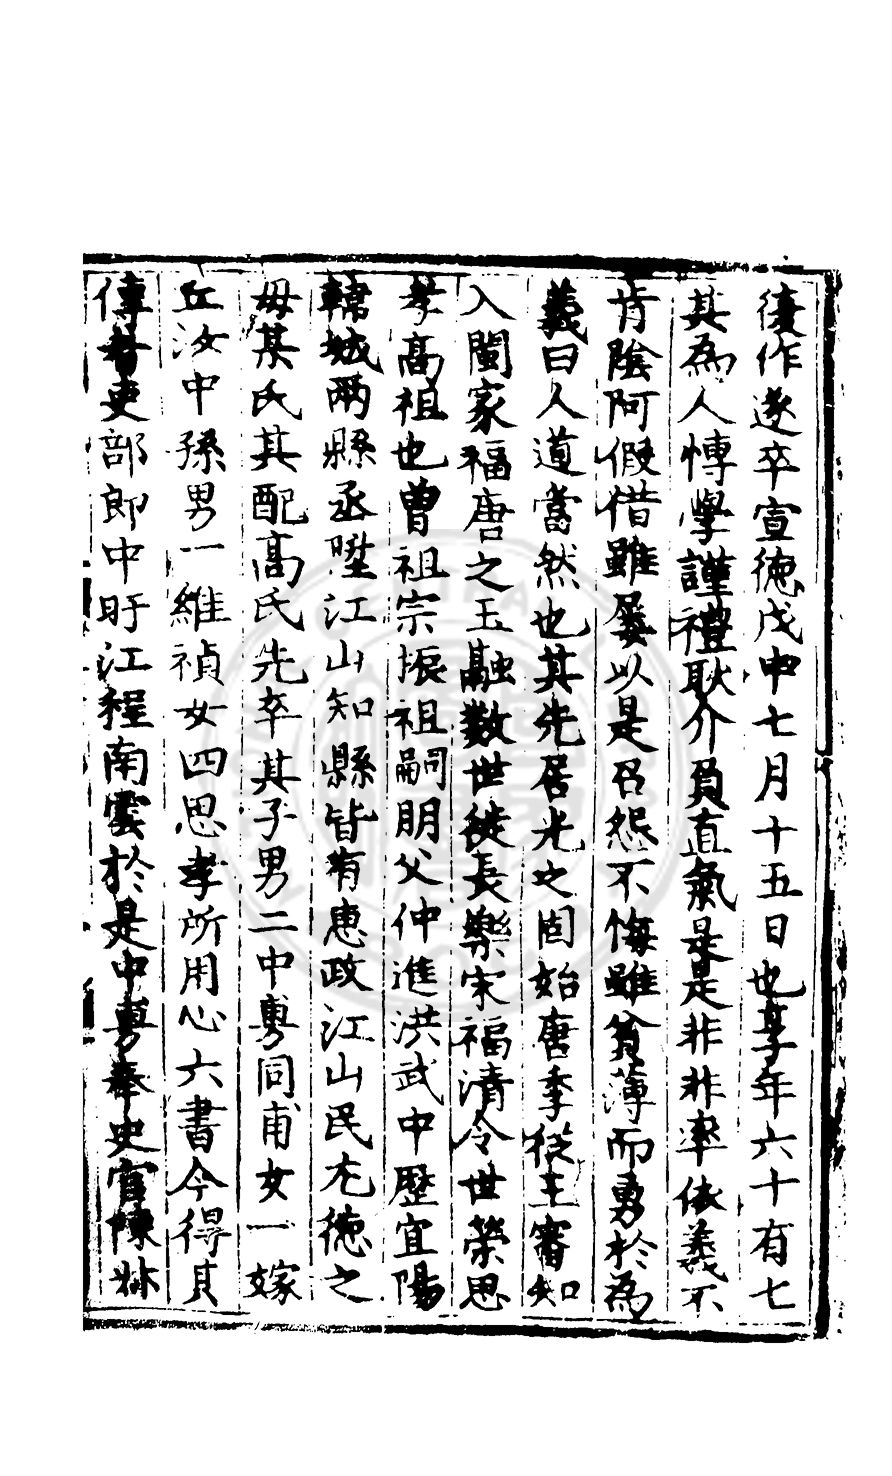 復作遂卒宣德戊申七月十五日也享年六十有七
其為人慱學謹禮耿介負直氣是是非非率依義不
肯陰阿假借雖屡以是召怨不悔雖貧薄而勇於為
義曰人道當然也其先居光之固始唐季從王審知
入閩家福唐之玉融數世徙長樂宋福清令世榮思
孝高祖也曾祖宗振祖嗣朋父仲進洪武中歷宜陽
韓城兩縣丞陞江山知縣皆有惠政江山民尤德之
母某氏其配高氏先卒其子男二中旉同甫女一嫁
丘汝中孫男一維禎女四思孝所用心六書今得其
傳者吏部郎中旴江程南雲於是中旉奉史官陳